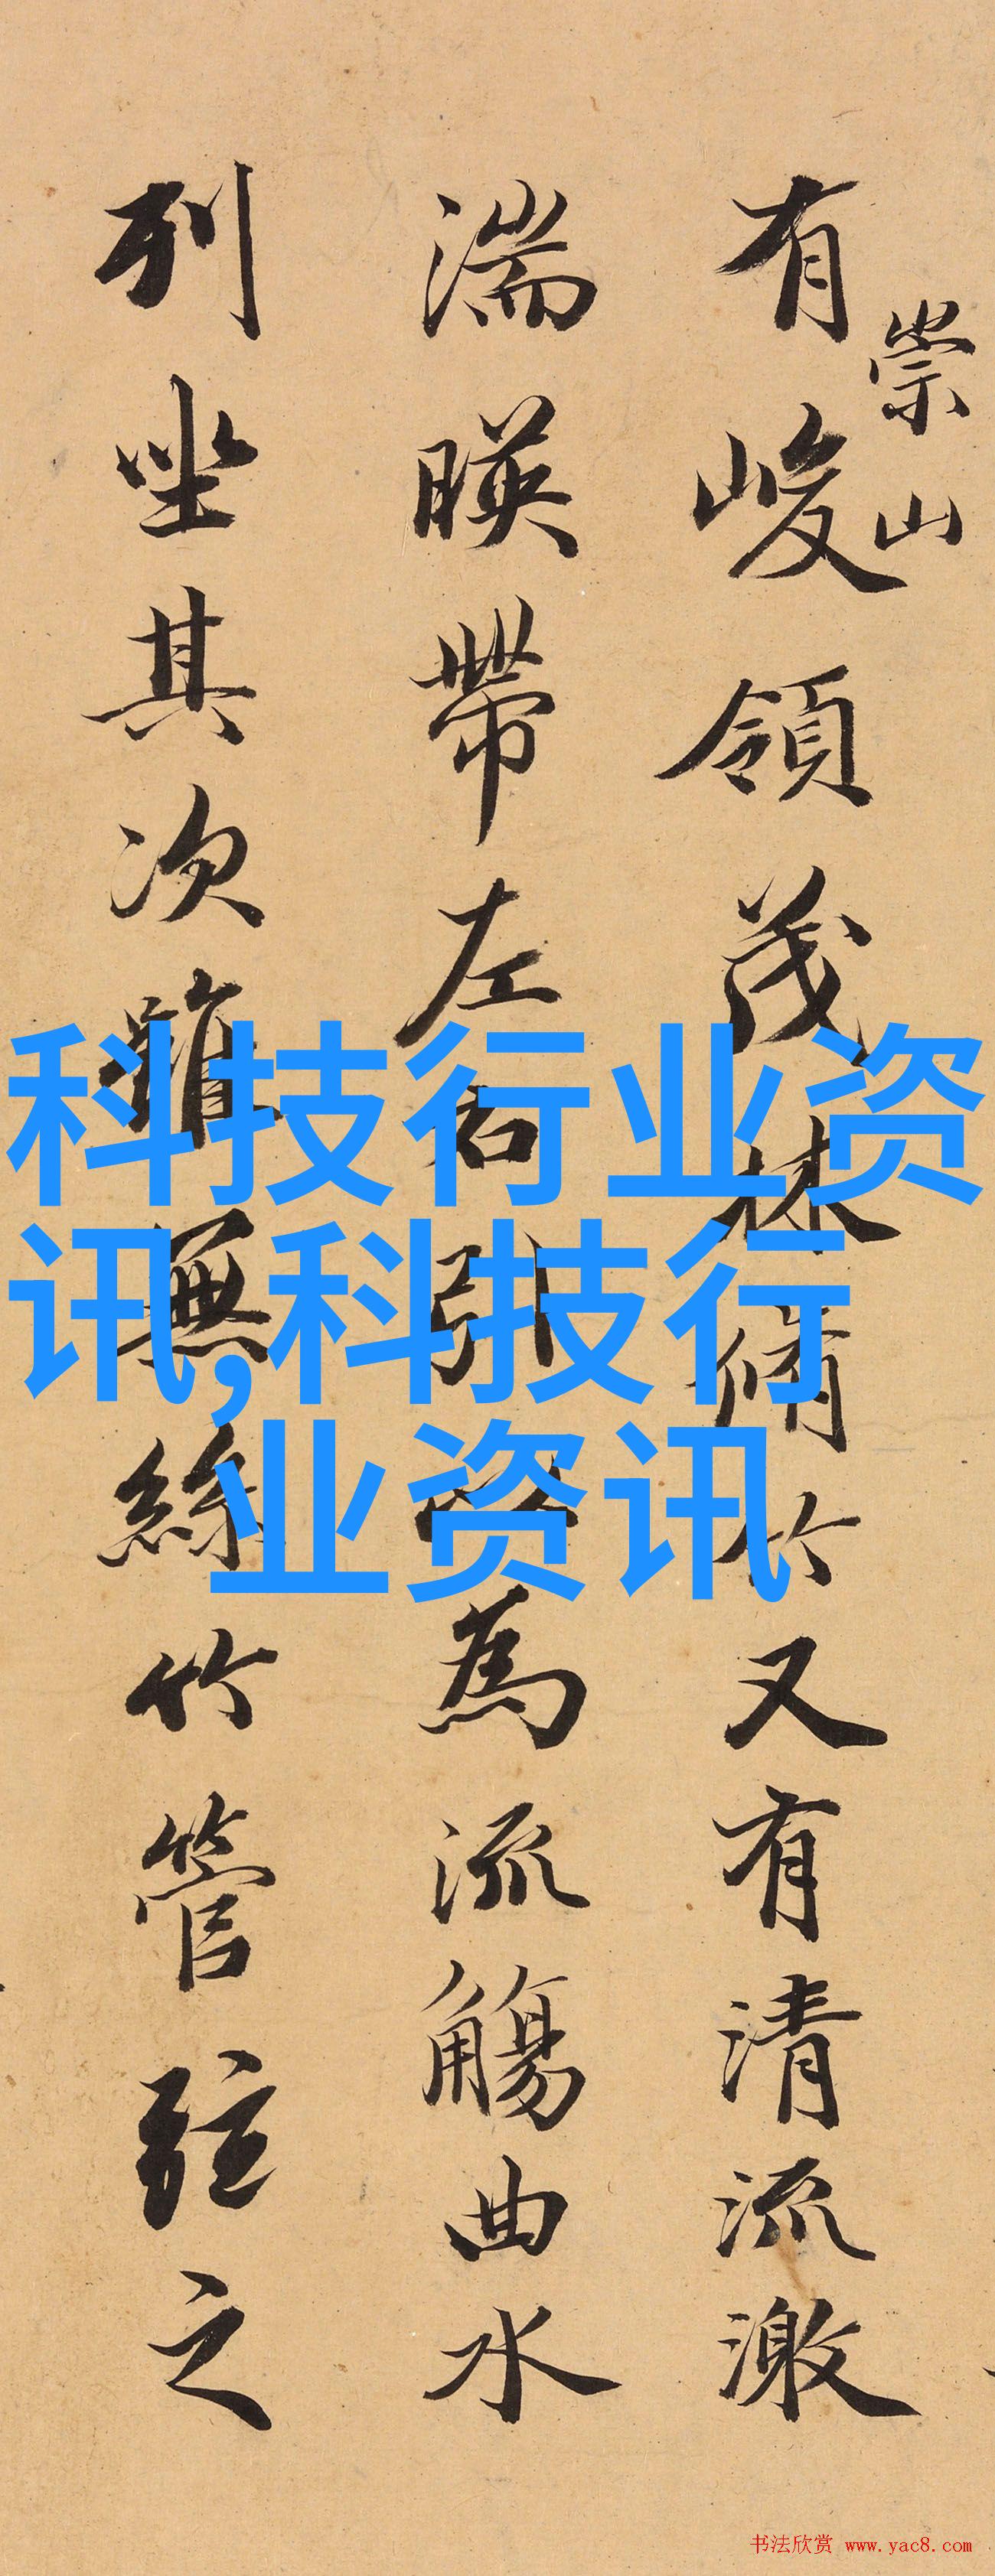 崇山
有峻領茂林脩竹又有清流激
湍暎帶左右引以為流觴曲水
列坐其次雖無絲竹管弦之
科技行业资
讯,科技行
业资讯
书法欣赏 www.yac8.com